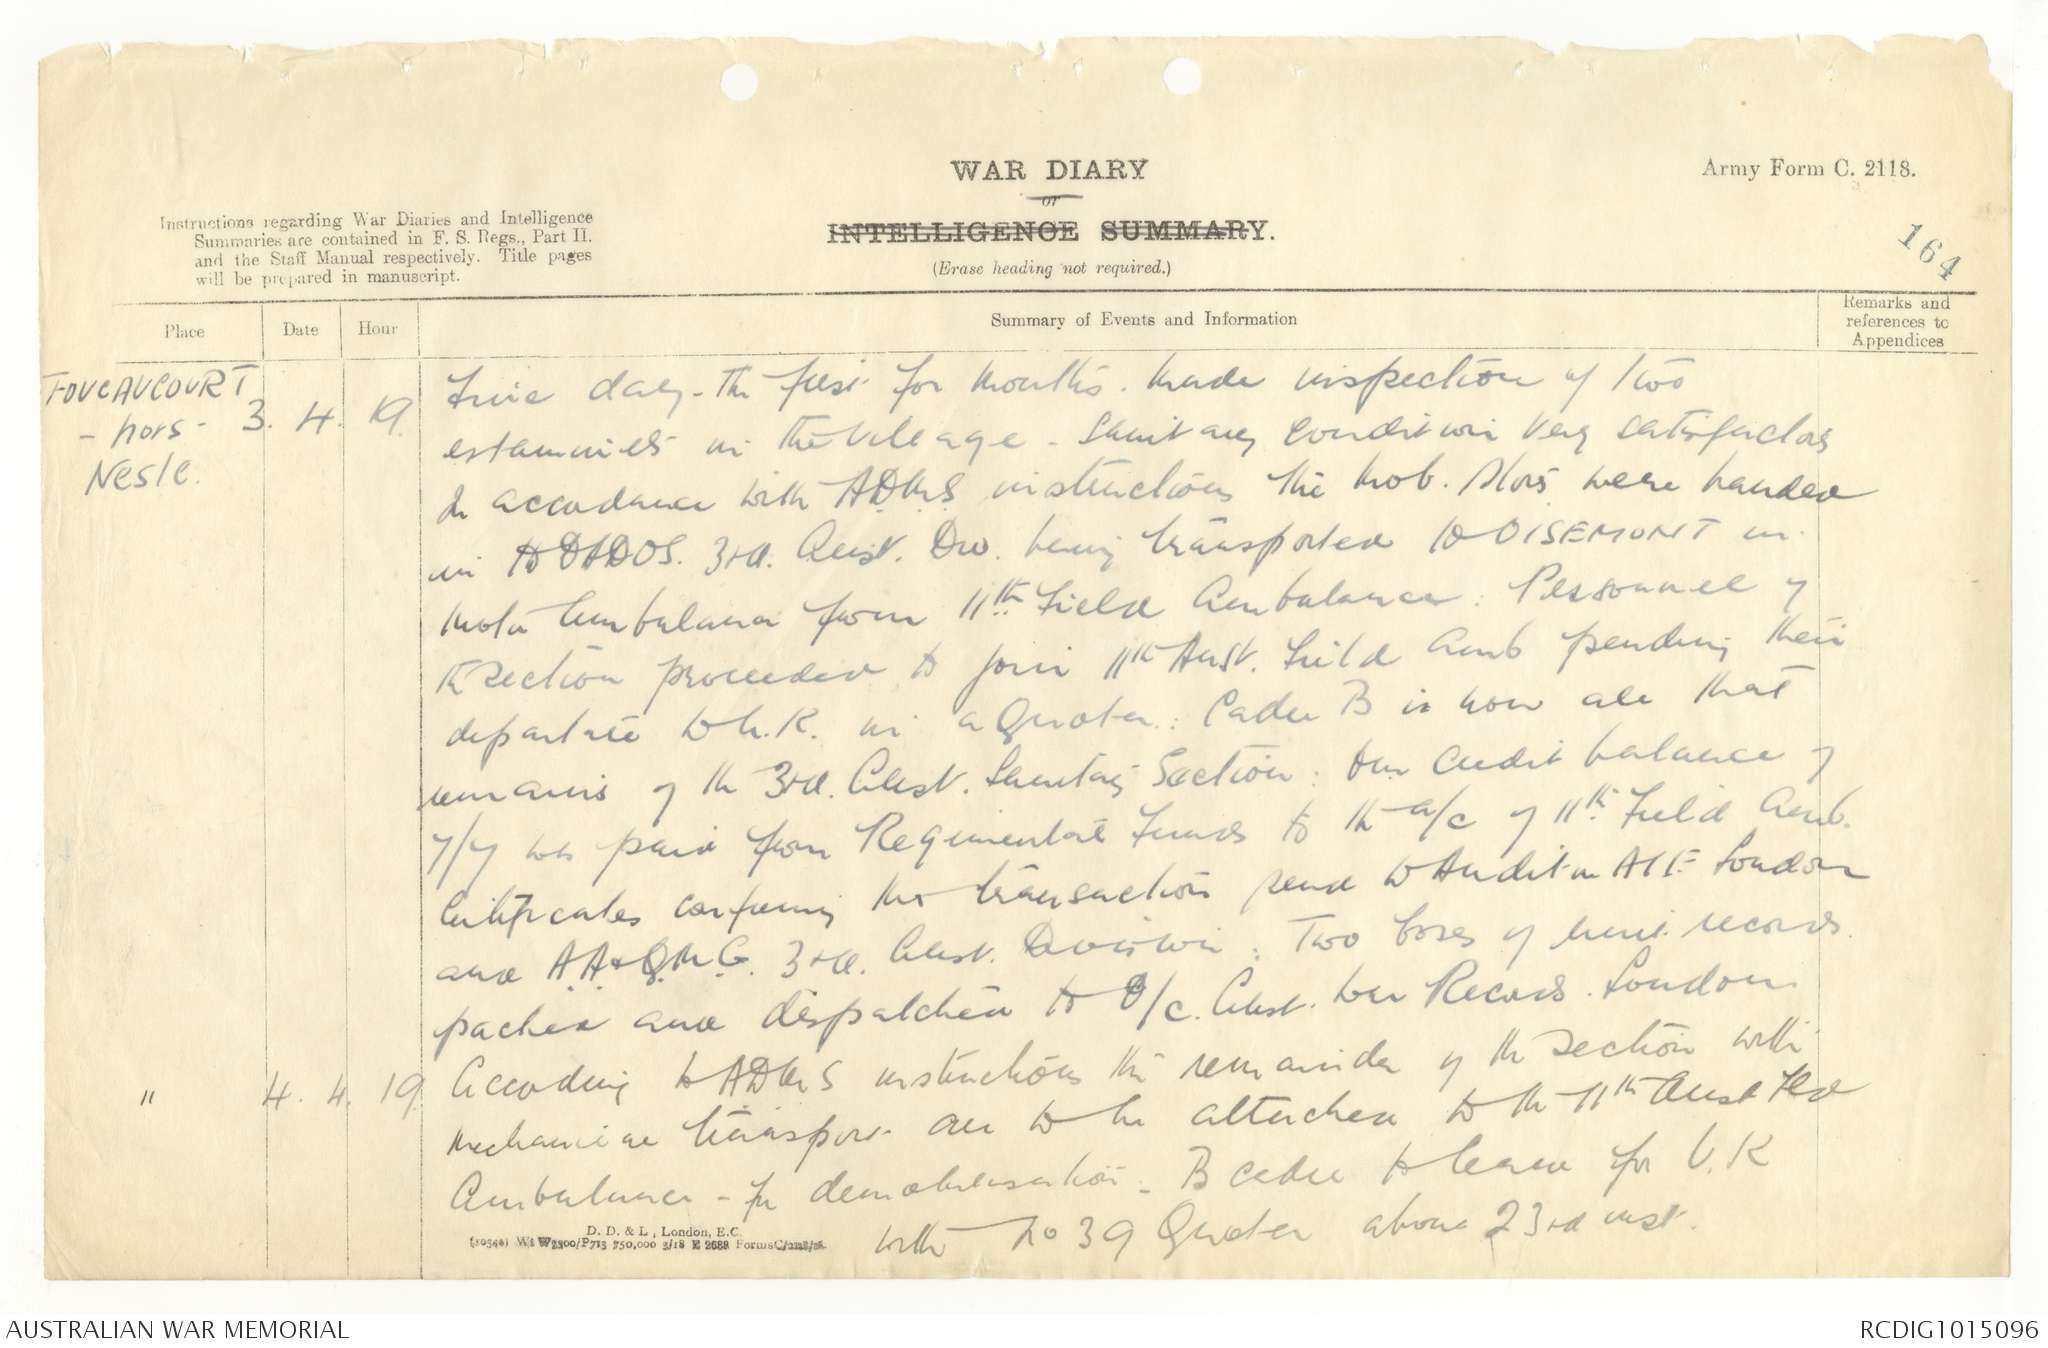 WAR DIARY
or
INTELLIGENCE SUMMARY.
(Erase heading not required.)
Army Form C. 2118.
164
Instructions regarding War Diaries and Intelligence
Summaries are contained in F. S. Regs., Part II.
and the Staff Manual respectively. Title pages
will be prepared in manuscript.
Place
Date
Hour
Summary of Events and Information
Remarks and
references to
Appendices
FOUCAUCOURT
- hors -
Nesle.
3. 4. 19.
Fine day - The first for months. Made inspection of two
estaminets in the village - Sanitary condition very satisfactory
In accordance with A.D.M.S instructions the mob. stores were handed
in to DADOS. 3rd. Aust. Div. being transported to OISEMONT in
Motor Ambulance from 11th. Field Ambulance: Personnel of
th section proceeded to join 11th Aust. Field Amb pending their
departure to U.K. in a Quota.: Cadre B is now all that
remains of th 3rd. Aust. Sanitary Section: Our credit balance of
7/7 was paid from Regimental Funds to th a/c of 11th Field Amb.
Certificates confirming this transaction send to Auditor AIF London
and A.A.&Q.M.G. 3rd. Aust. Division: Two boxes of unit records
packed and dispatched to O/c. Aust. War Records. London.
" 4. 4. 19.
According to ADMS instructions the remainder of th section with
mechanical transport are to be attached to th 11th Aust Fld
Ambulance - for demobilisation - B cadre to leave for U.K
with No 39 Quota about 23rd inst.
D. D. & L., London, E.C.
(10340) Wt W5300/P713 750,000 3/18 E 2688 Forms C/2118/16.
AUSTRALIAN WAR MEMORIAL
RCDIG1015096